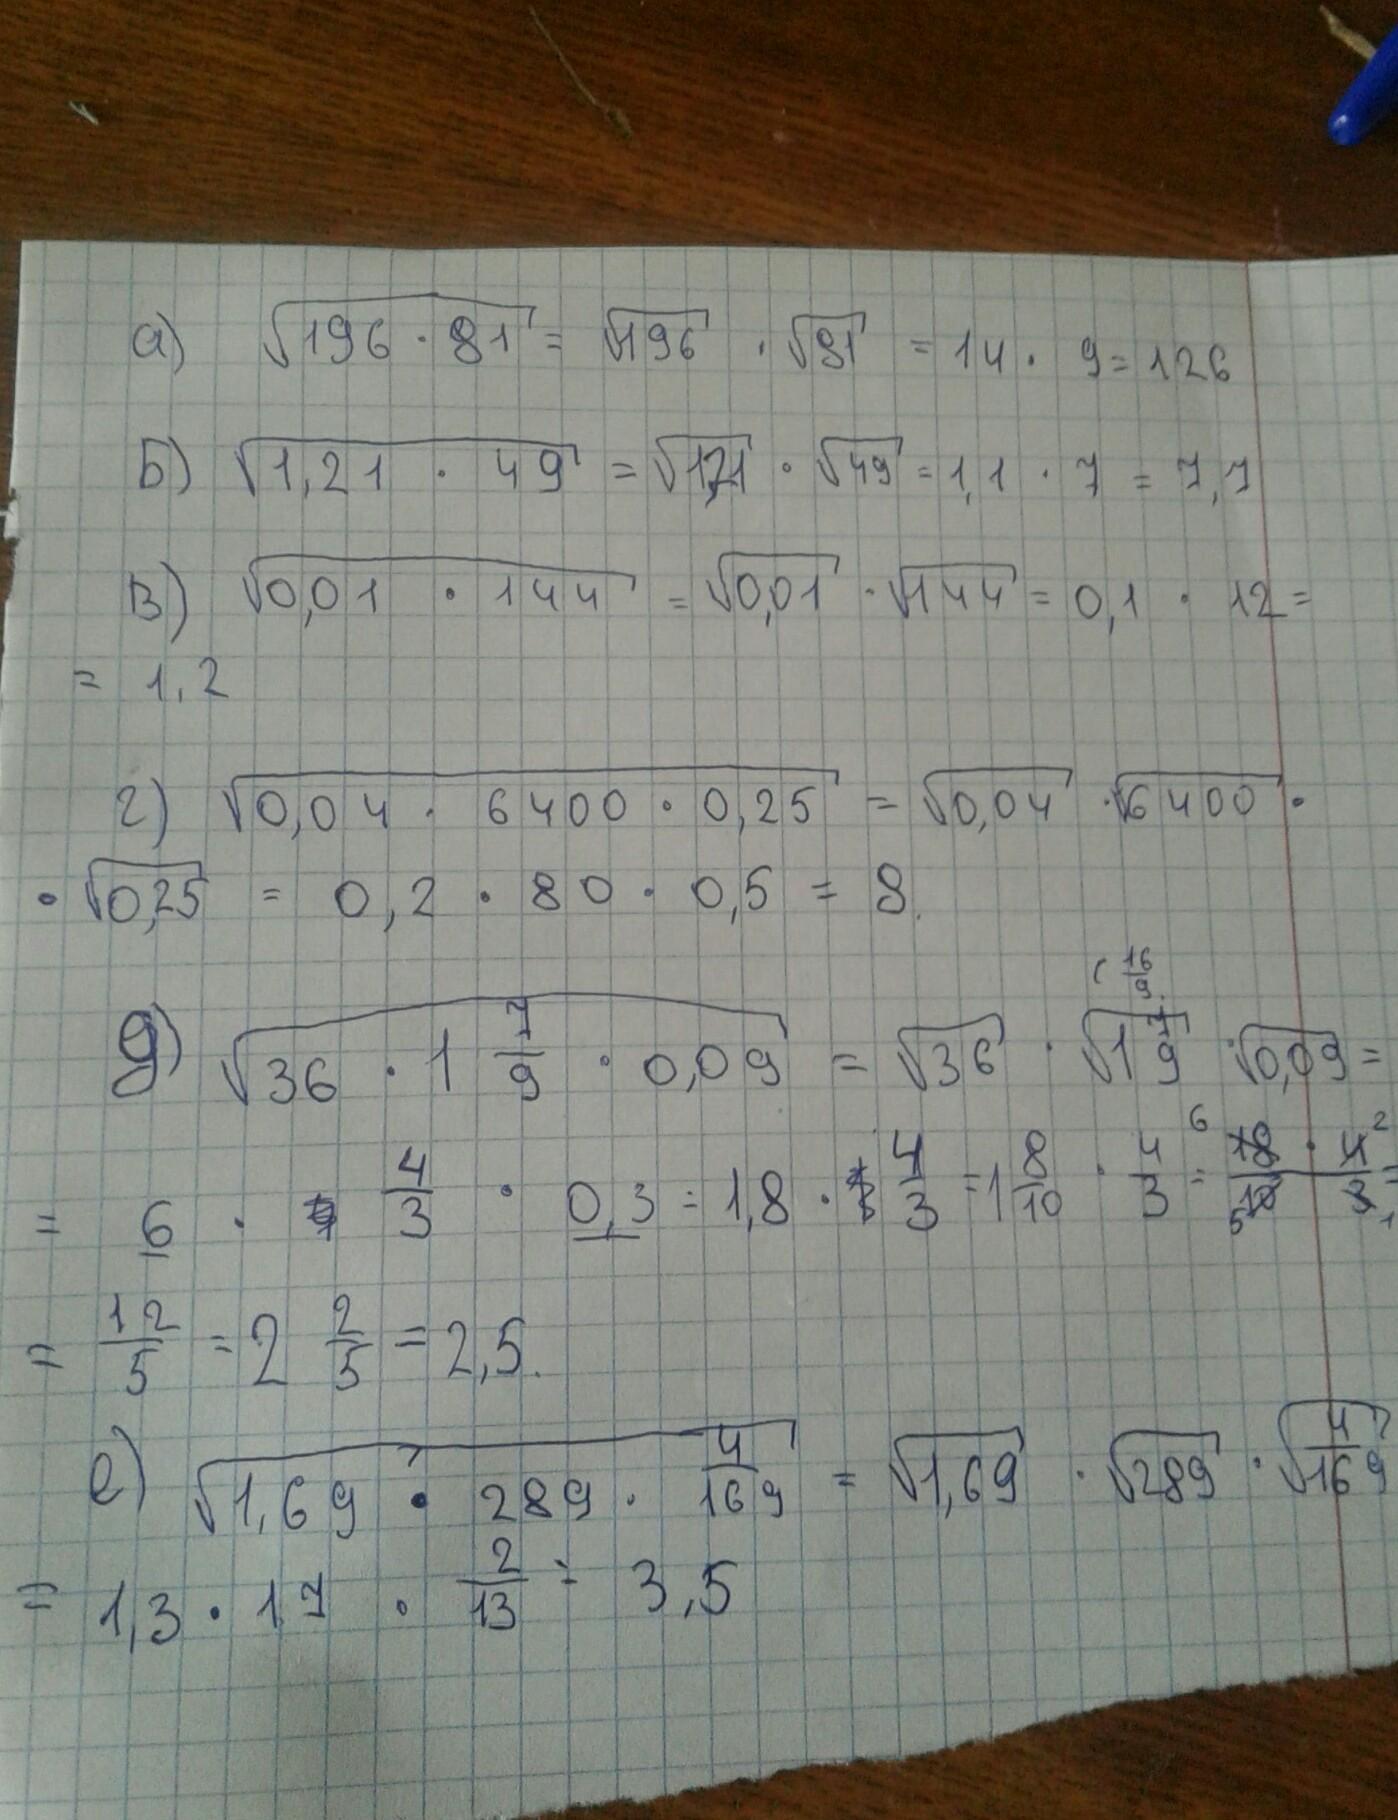 а) √196 · 81 = √196 · √81 = 14 · 9 = 126
Б) √1,21 · 49 = √1,21 · √49 = 1,1 · 7 = 7,7
В) √0,01 · 144 = √0,01 · √144 = 0,1 · 12 =
= 1,2
г) √0,04 · 6400 · 0,25 = √0,04 · √6400 ·
· √0,25 = 0,2 · 80 · 0,5 = 8.
(16/9
д) √36 · 1 7/9 · 0,09 = √36 · √1 7/9 · √0,09 =
= 6 · 4/3 · 0,3 = 1,8 · 4/3 = 1 8/10 · 4/3 = 6 18 · 4 2 / 5 10 3 1 =
= 12/5 = 2 2/5 = 2,5.
е) √1,69 · 289 · 4/169 = √1,69 · √289 · √4/169
= 1,3 · 17 · 2/13 = 3,5